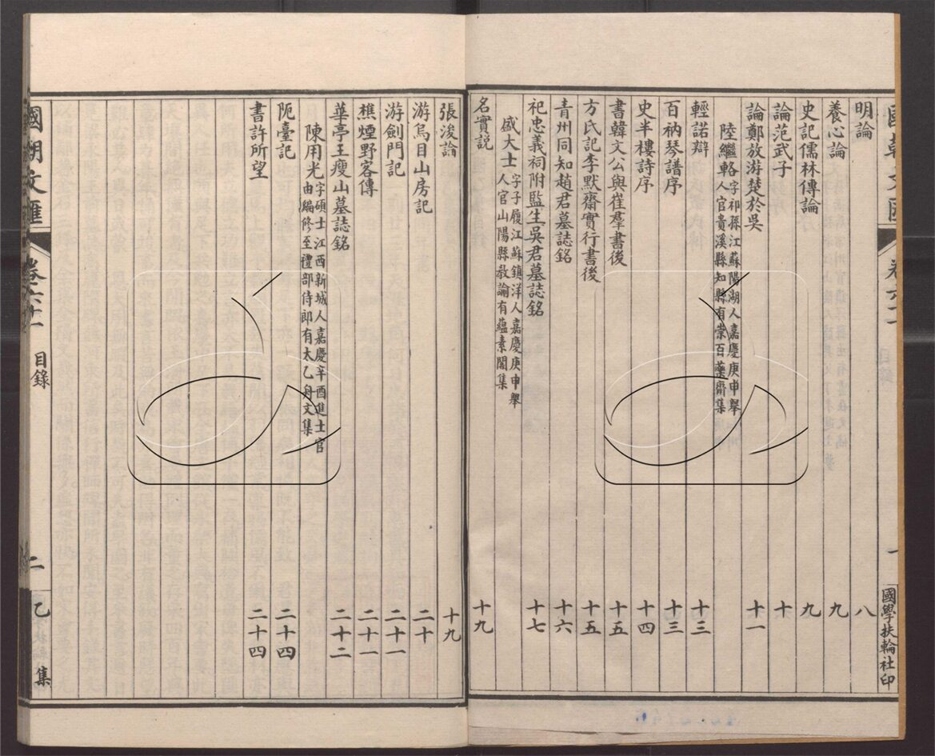 明論 八
養心論 九
史記儒林傳論 九
論范武子 十
論鄭放游楚於吳 十一
陸繼輅 字祁孫江蘇陽湖人嘉慶庚申舉
人官貴溪縣知縣有崇百藥齋集
輕諾辯 十三
百衲琴譜序 十三
史半樓詩序 十四
書韓文公與崔羣書後 十五
方氏記李默齋實行書後 十五
青州同知趙君墓誌銘 十六
祀忠義祠附監生吳君墓誌銘 十七
盛大士 字子履江蘇鎮洋人嘉慶庚申舉
人官山陽縣教諭有蘊素閣集
名實說 十九
國學扶輪社印
張浚論 十九
游焉目山房記 二十
游劍門記 二十一
樵煙野客傳 二十一
華亭王瘦山墓誌銘 二十二
陳用光 字碩士江西新城人嘉慶辛酉進士官
由編修至禮部侍郎有太乙舟文集
阨臺記 二十四
書許所望 二十四
國朝文匯 卷六十一 目錄 二 乙集